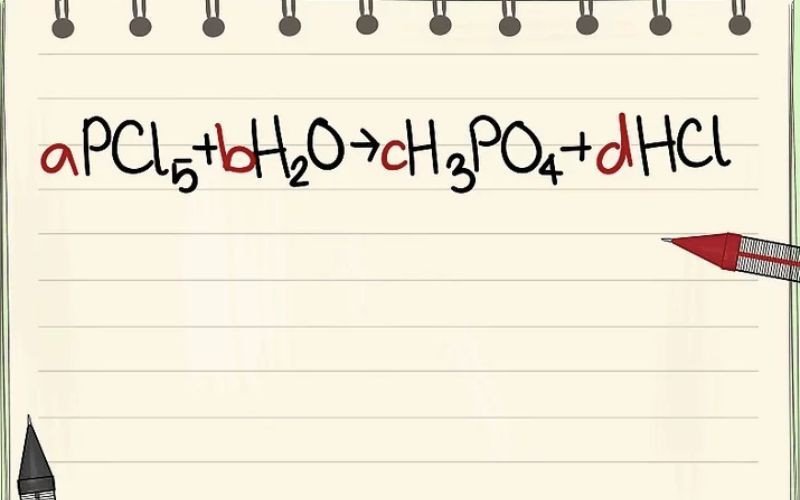 aPCl₅+bH₂O→cH₃PO₄+dHCl